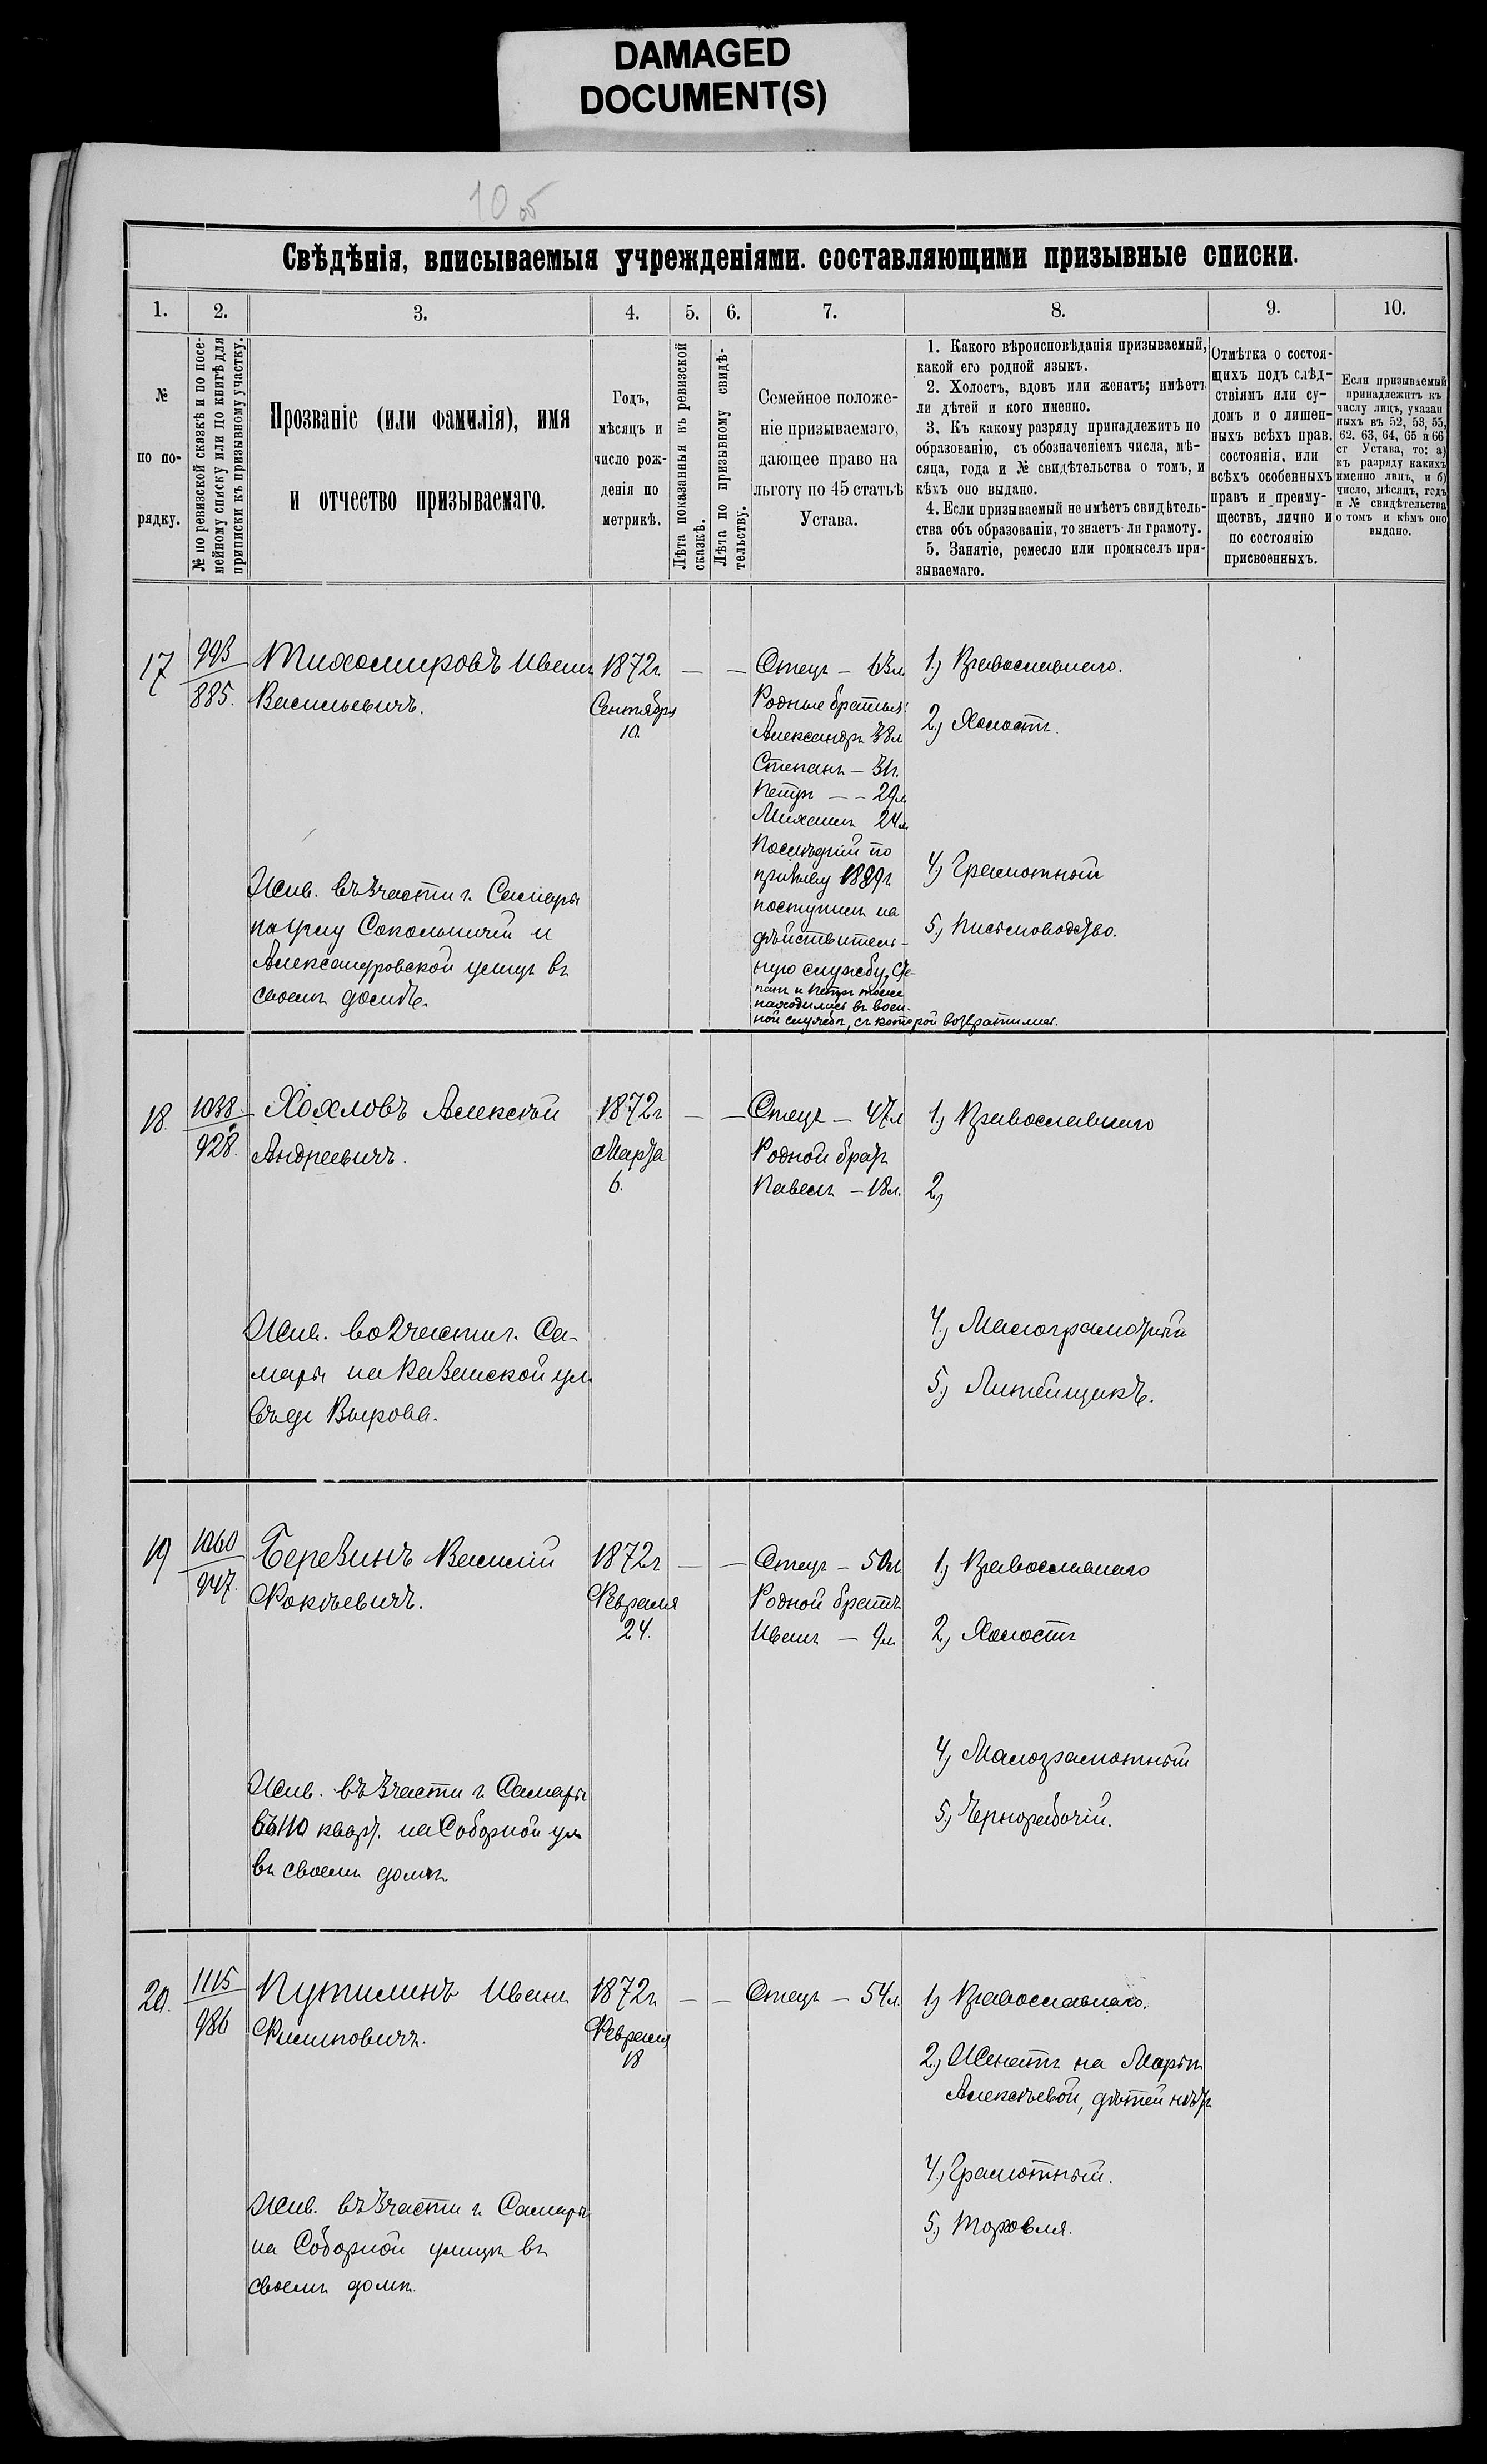 DAMAGED
DOCUMENT(S)
10 об
Свѣдѣнія, вписываемыя учрежденіями. составляющими призывные списки.
1.
2.
3.
4.
5.
6.
7.
8.
9.
10.
№
по по-
рядку.
№ по ревизской сказкѣ и по посе-
мейному списку или по книгѣ для
приписки къ призывному участку.
Прозваніе (или фамилія), имя
и отчество призываемаго.
Годъ,
мѣсяцъ и
число рож-
денія по
метрикѣ.
Лѣта показанныя въ ревизской
сказкѣ.
Лѣта по призывному свидѣ-
тельству.
Семейное положе-
ніе призываемаго,
дающее право на
льготу по 45 статьѣ
Устава.
1. Какого вѣроисповѣданія призываемый,
какой его родной языкъ.
2. Холостъ, вдовъ или женатъ; имѣетъ
ли дѣтей и кого именно.
3. Къ какому разряду принадлежитъ по
образованію, съ обозначеніемъ числа, мѣ-
сяца, года и № свидѣтельства о томъ, и
кѣмъ оно выдано.
4. Если призываемый не имѣетъ свидѣтель-
ства объ образованіи, то знаетъ ли грамоту.
5. Занятіе, ремесло или промыселъ при-
зываемаго.
Отмѣтка о состоя-
щихъ подъ слѣд-
ствіямъ или су-
домъ и о лишен-
ныхъ всѣхъ прав.
состоянія, или
всѣхъ особенныхъ
правъ и преиму-
ществъ, лично и
по состоянію
присвоенныхъ.
Если призываемый
принадлежитъ къ
числу лицъ, указан
ныхъ въ 52, 53, 55,
62. 63, 64, 65 и 66
ст Устава, то: а)
къ разряду какихъ
именно лицъ, и б)
число, мѣсяцъ, годъ
и № свидѣтельства
о томъ и кѣмъ оно
выдано.
17
993
885.
Тихомировъ Иванъ
Васильевичъ.
Жив. въ 3 части г. Самары
на углу Сокольничей и
Александровской улицъ въ
своемъ домѣ.
1872 г
Сентября
10.
—
—
Отецъ – 63 л
Родные братья:
Александръ 38 л
Степанъ – 31 г.
Петръ – – 29 л
Михаилъ 24 л
Послѣдній по
призыву 1889 г
поступилъ на
дѣйствитель-
ную службу, Сте-
панъ и Петръ тоже
находились въ воен-
ной службѣ, съ которой возвратились.
1) Православнаго.
2) Холостъ.
4) Грамотный
5) Письмоводство.
18.
1038.
928.
Хохловъ Алексѣй
Андреевичъ.
Жив. во 2 части г. Са-
мары на Казанской ул.
въ д. Вырова.
1872 г
Марта
6.
—
—
Отецъ – 47 л
Родной братъ
Павелъ – 18 л.
1) Православнаго
2)
4) Малограмотный
5) Литейщикъ.
19
1060
947.
Березинъ Василій
Фокѣевичъ.
Жив. въ 3 части г. Самары
въ 110 кварт. на Соборной ул
въ своемъ домѣ
1872 г
Февраля
24.
—
—
Отецъ – 50 л
Родной братъ
Иванъ – 9 л
1) Православнаго
2) Холостъ
4) Малограмотный
5) Чернорабочій.
20.
1115
986
Путилинъ Иванъ
Филиповичъ.
Жив. въ 3 части г. Самары
на Соборной улицѣ въ
своемъ домѣ.
1872 г.
Февраля
18
—
—
Отецъ – 54 л.
1) Православнаго.
2) Женатъ на Марьѣ
Алексѣевой, дѣтей нѣтъ
4) Грамотный.
5) Торговля.